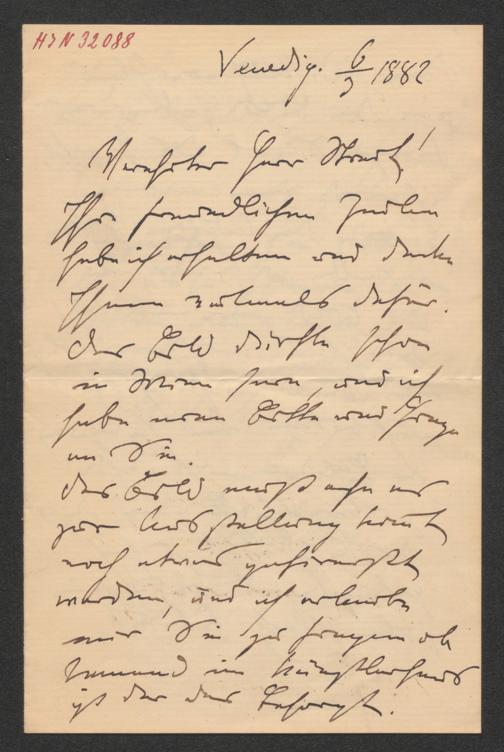 HIN 32088
Venedig. 6/3 1882
Verehrter Herr Streit!
Ihre freundlichen Zeilen
habe ich erhalten und danke
Ihnen vielmals dafür.
Das Bild dürfte schon
in Wien sein, und ich
habe eine Bitte und Frage
an Sie.
Das Bild muß ehe es
zur Ausstellung kommt
noch etwas gefirnißt
werden, und ich erlaube
mir Sie zu fragen ob
Jemand im Künstlerhaus
ist der das besorgt.